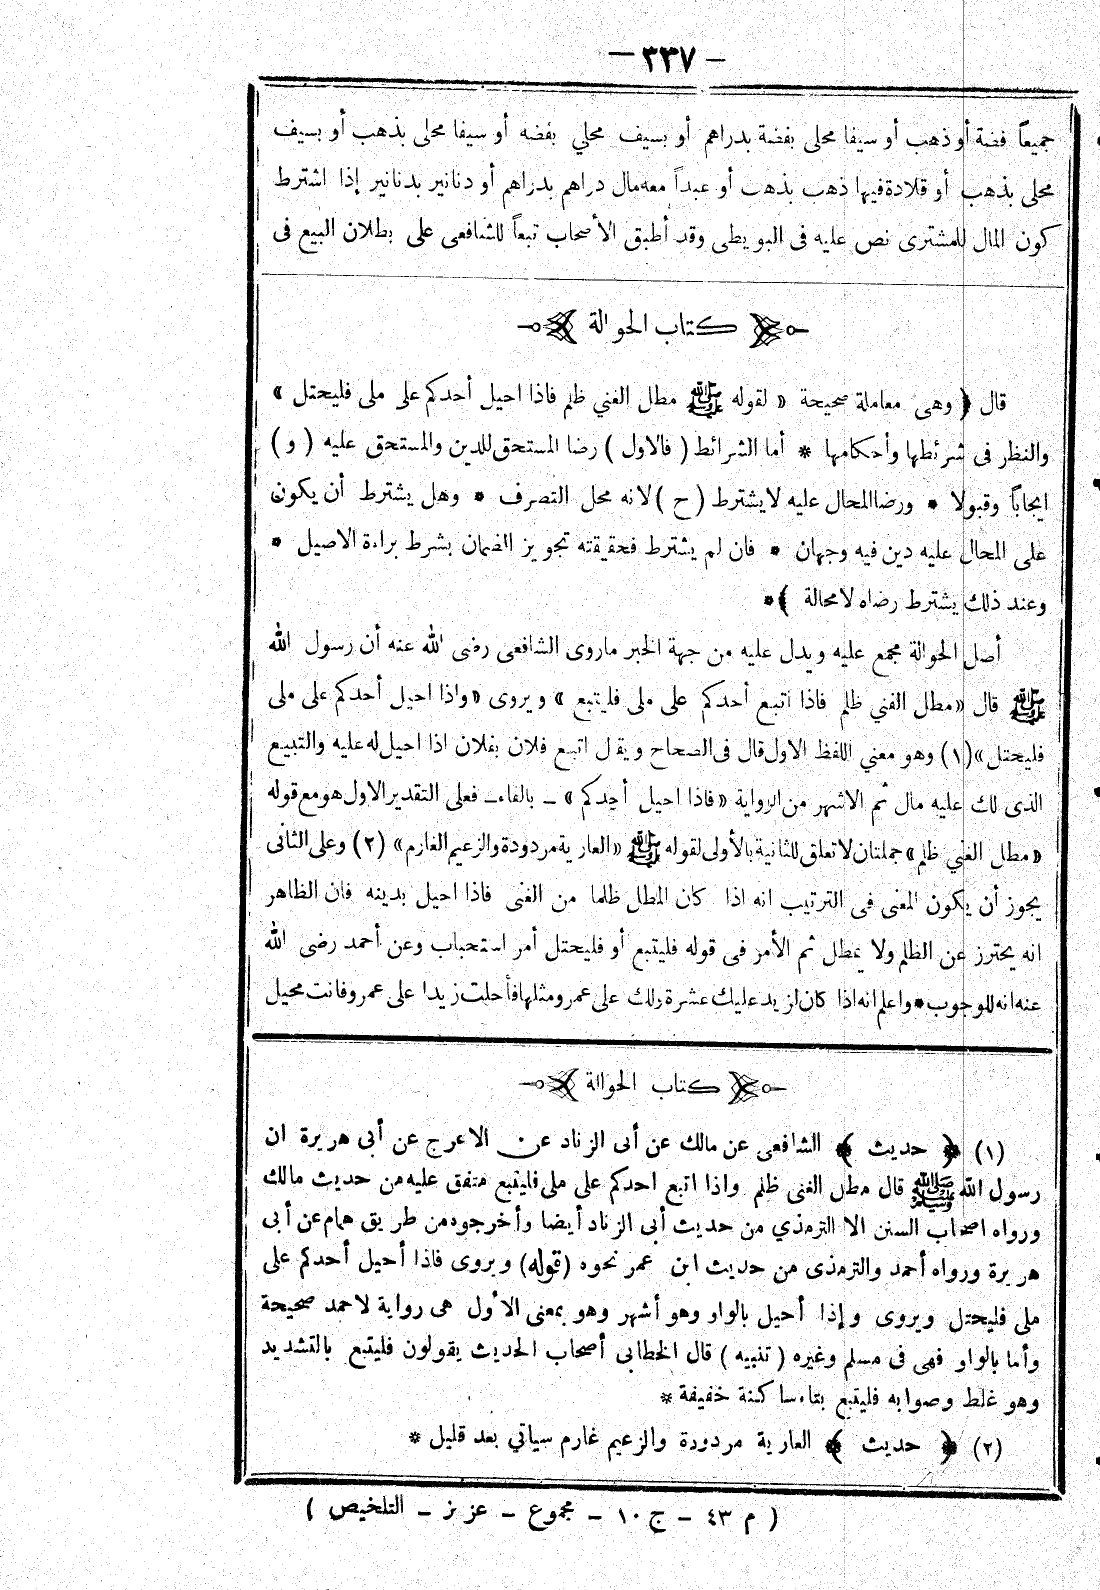 – ٣٣٧ –
جميعاً فضة أو ذهب أو سيفا محلى بفضة بدراهم أو بسيف محلي بفضه أو سيفا محلى بذهب أو بسيف
محلى بذهب أو قلادة فيها ذهب بذهب أو عبداً معه مال دراهم بدراهم أو دنانير بدنانير إذا اشترط
كون المال للمشترى نص عليه فى البويطى وقد أطبق الأصحاب تبعاً للشافعى على بطلان البيع فى
كتاب الحوالة
قال ﴿ وهى معاملة صحيحة « لقوله ﷺ مطل الغني ظلم فاذا احيل أحدكم على ملى فليحتل »
والنظر فى شرئطها وأحكامها * أما الشرائط ( فالاول ) رضا المستحق للدين والمستحق عليه ( و )
ايجاباً وقبولا * ورضا المحال عليه لا يشترط ( ح ) لانه محل التصرف * وهل يشترط أن يكون
على المحال عليه دين فيه وجهان * فان لم يشترط فحقيقته تجويز الضمان بشرط براءة الاصيل *
وعند ذلك يشترط رضاه لا محالة ﴾ *
أصل الحوالة مجمع عليه ويدل عليه من جهة الخبر ماروى الشافعى رضى الله عنه أن رسول الله
ﷺ قال « مطل الغني ظلم فاذا اتبع أحدكم على ملى فليتبع » ويروى « واذا احيل أحدكم على ملى
فليحتل » (١) وهو معني اللفظ الاول قال فى الصحاح ويقال اتبع فلان بفلان اذا احيل له عليه والتبيع
الذى لك عليه مال ثم الاشهر من الرواية « فاذا احيل أحدكم » ـ بالفاء ـ فعلى التقدير الاول هو مع قوله
« مطل الغني ظلم » جملتان لا تعلق للثانية بالأولى لقوله ﷺ « العارية مردودة والزعيم الغارم » (٢) وعلى الثانى
يجوز أن يكون المعنى فى الترتيب انه اذا كان المطل ظلما من الغنى فاذا احيل بدينه فان الظاهر
انه يحترز عن الظلم ولا يمطل ثم الأمر فى قوله فليتبع أو فليحتل أمر استحباب وعن أحمد رضى الله
عنه انه للوجوب * واعلم انه اذا كان لزيد عليك عشرة ولك على عمرو مثلها فأحلت زيدا على عمرو فانت محيل
كتاب الحوالة
(١) ﴿ حديث ﴾ الشافعى عن مالك عن أبى الزناد عن الاعرج عن أبى هريرة ان
رسول الله ﷺ قال مطل الغنى ظلم واذا اتبع احدكم على ملى فليتبع متفق عليه من حديث مالك
ورواه اصحاب السنن الا الترمذي من حديث أبى الزناد أيضا وأخرجوه من طريق همام عن أبى
هريرة ورواه أحمد والترمذى من حديث ابن عمر نحوه (قوله) ويروى فاذا أحيل أحدكم على
ملى فليحتل ويروى وإذا أحيل بالواو وهو أشهر وهو بمعنى الأول هى رواية لاحمد صحيحة
وأما بالواو فهى فى مسلم وغيره ( تنبيه ) قال الخطابى أصحاب الحديث يقولون فليتبع بالتشديد
وهو غلط وصوابه فليتبع بتاء ساكنة خفيفة *
(٢) ﴿ حديث ﴾ العارية مردودة والزعيم غارم سياتي بعد قليل *
( م ٤٣ – ج ١٠ – مجموع – عزيز – التلخيص )